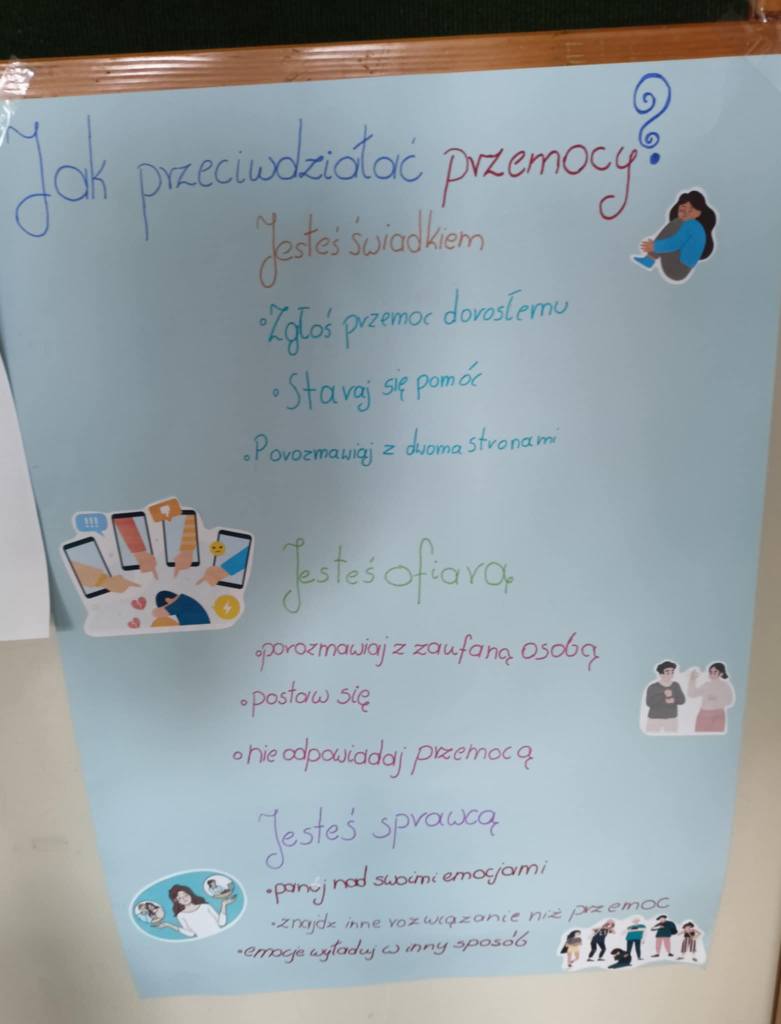 Jak przeciwdziałać przemocy?
Jesteś świadkiem
•Zgłoś przemoc dorosłemu
•Staraj się pomóc
•Porozmawiaj z dwoma stronami
!!!
Jesteś ofiarą
•porozmawiaj z zaufaną osobą
•postaw się
•nie odpowiadaj przemocą
Jesteś sprawcą
•panuj nad swoimi emocjami
•znajdz inne rozwiązanie niż przemoc
•emocje wyładuj w inny sposób